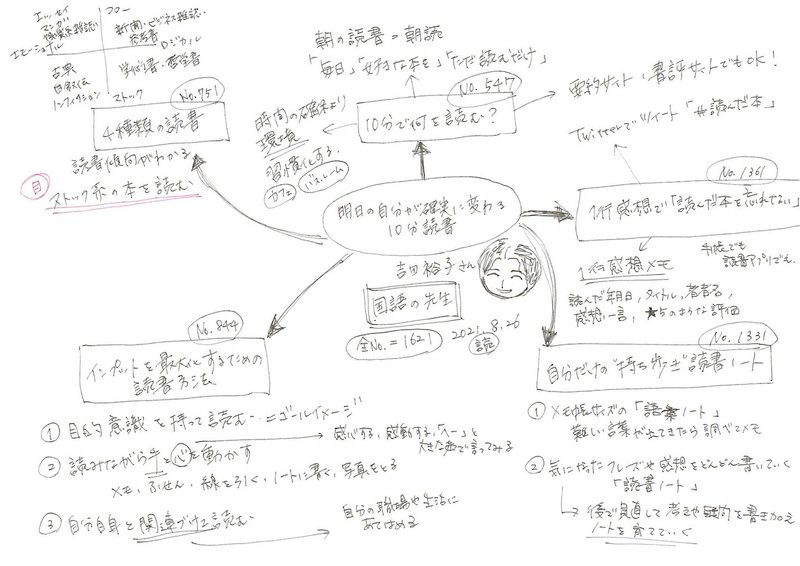 エッセイ
マンガ
情報系雑誌
フロー
新聞・ビジネス雑誌
参考書
エモーショナル
ロジカル
古典
自叙伝
ノンフィクション
ストック
学術書・哲学書
No.751
4種類の読書
読書傾向がわかる
自
ストック系の本を読む
朝の読書=朝読
「毎日」「好きな本を」「ただ読むだけ」
No.547
10分で何を読む?
時間の確保より
環境
習慣化する
カフェ
バスルーム
要約サイト、書評サイトでもOK!
Twitterでツイート「#読んだ本」
No.1361
1行感想で「読んだ本を忘れない」
手帳でも
読書アプリでも。
1行感想メモ
読んだ年月日、タイトル、著者名、
感想一言、★5のような評価
明日の自分が確実に変わる
10分読書
吉田裕子さん
国語の先生
全No.=1621
2021.8.26
読
No.844
インプットを最大化するための
読書方法
① 目的意識を持って読む…=ゴールイメージ
② 読みながら手と心を動かす
感心する、感動する、「へー」と
大きな声で言ってみる
メモ、ふせん、線を引く、ノートに書く、写真をとる
③ 自分自身と関連づけて読む
自分の職場や生活に
あてはめる
No.1331
自分だけの"持ち歩き"読書ノート
① メモ帳サイズの「語彙ノート」
難しい言葉が出てきたら調べてメモ
② 気になったフレーズや感想をどんどん書いていく
「読書ノート」
後で見直して考えや疑問を書き加え
ノートを育てていく